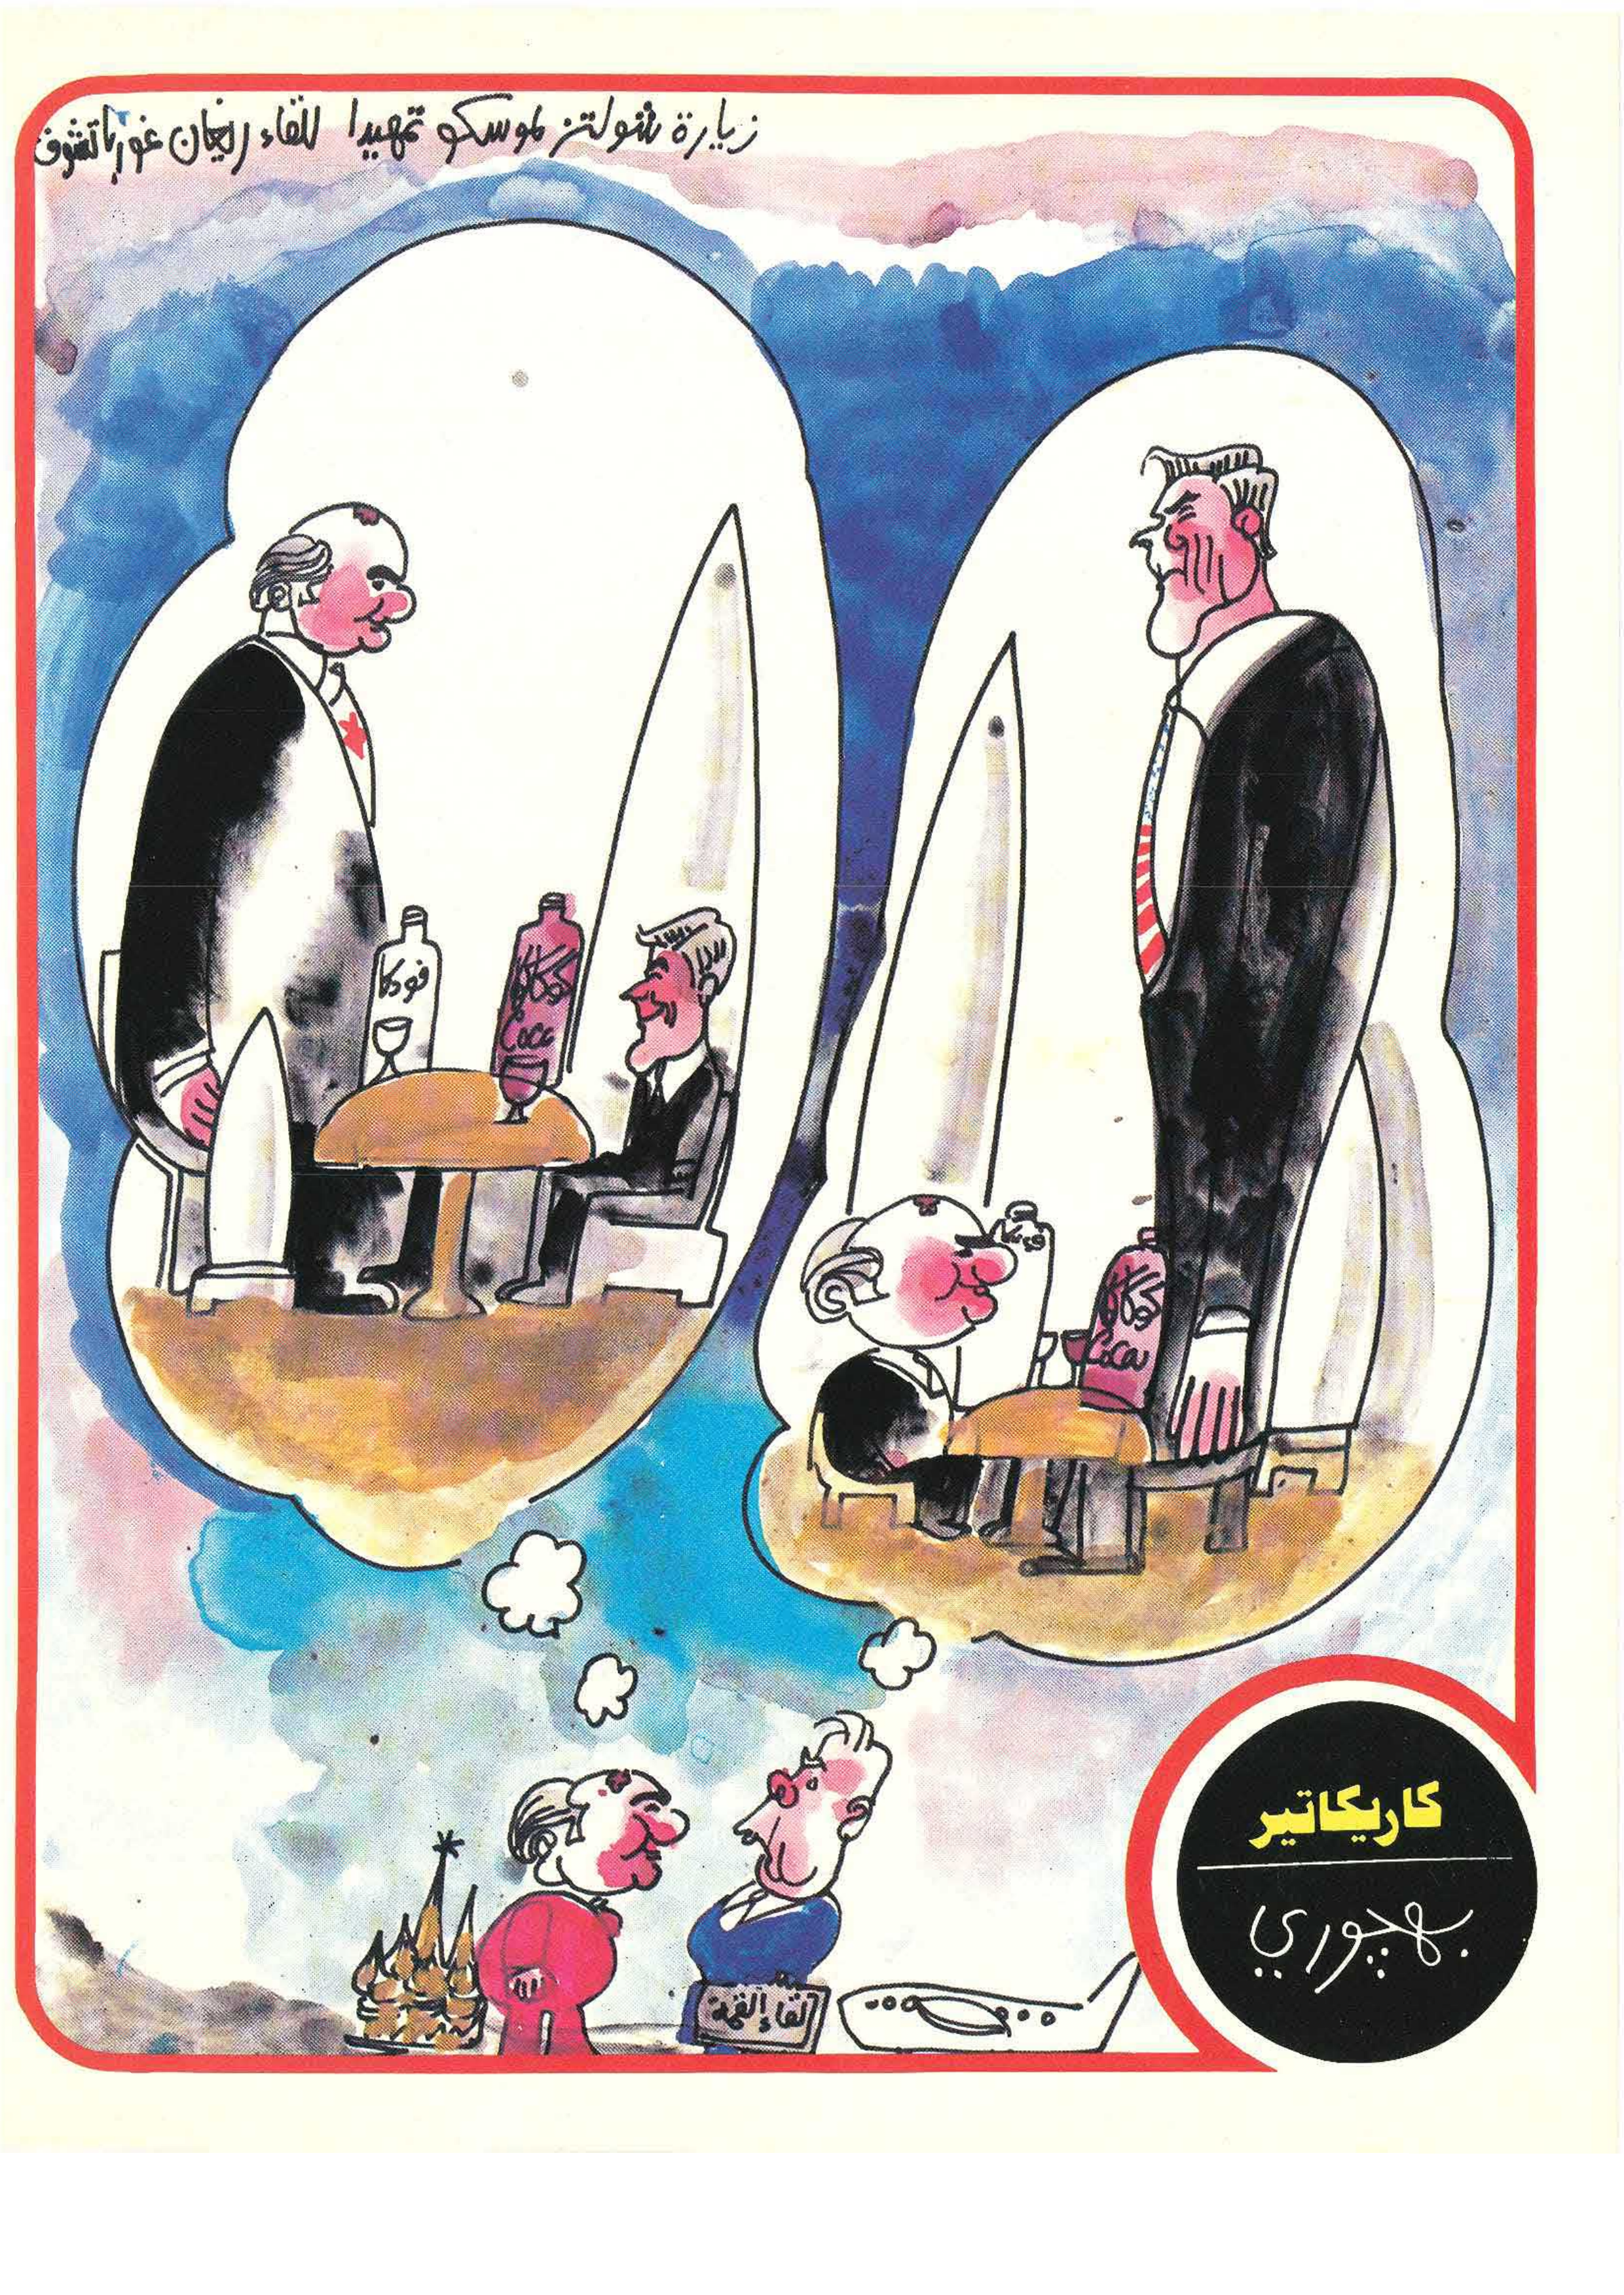 زيارة شولتز لموسكو تمهيدا للقاء ريغان غورباتشوف
فودكا
كوكاكولا
Coca
فودكا
كوكاكولا
Coca
لقاء القمة
كاريكاتير
بهجوري